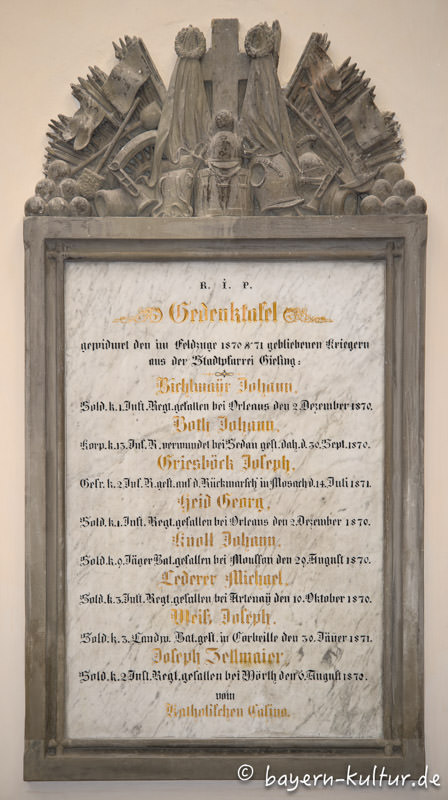 R. I. P.
Gedenktafel
gewidmet den im Feldzuge 1870 & 71 gebliebenen Kriegern
aus der Stadtpfarrei Giesing:
Bichlmaÿr Johann.
Sold. k. 1. Inft. Regt. gefallen bei Orleans den 2. Dezember 1870.
Both Johann.
Korp. k. 13. Inf. R. verwundet bei Sedan gest. dah. d. 30. Sept. 1870.
Griesböck Joseph.
Gefr. k. 2. Inf. R. gest. auf d. Rückmarsch in Mosach d. 14. Juli 1871.
Heid Georg.
Sold. k. 1. Inft. Regt. gefallen bei Orleans den 2. Dezember 1870.
Knoll Johann.
Sold. k. 9. Jäger Bat. gefallen bei Moulson den 29. August 1870.
Lederer Michael.
Sold. k. 3. Inft. Regt. gefallen bei Artenaÿ den 10. Oktober 1870.
Weiß Joseph.
Sold. k. 3. Landw. Bat. gest. in Corbeille den 30. Jäner 1871.
Joseph Zellmaier.
Sold. k. 2. Inft. Regt. gefallen bei Wörth den 6. August 1870.
vom
Katholischen Casino.
© bayern-kultur.de